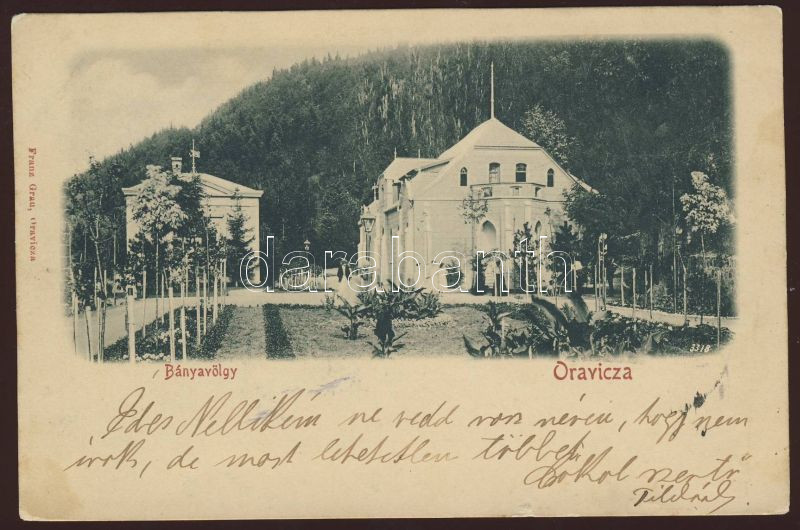 Franz Grau, Oravicza
darabanth
3318
Bányavölgy
Oravicza
Édes Nellikém ne vedd rosz néven, hogy nem
irok, de most lehetetlen többet
Csokol szerető